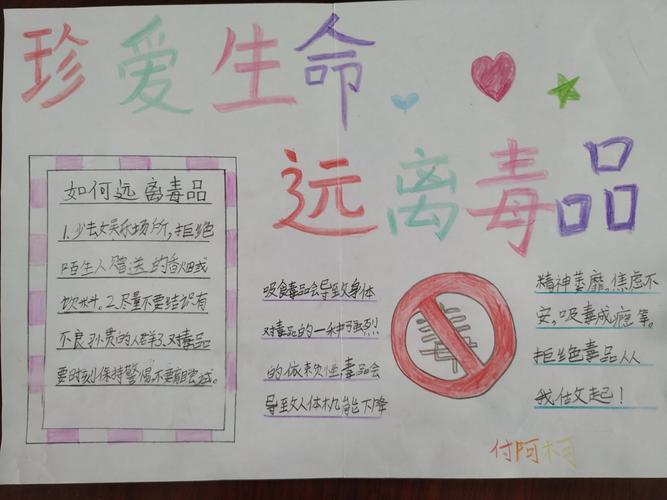 珍爱生命
远离毒品
如何远离毒品
1.少去娱乐场所,拒绝
陌生人赠送的香烟或
饮料。2.尽量不要结识有
不良习惯的人群3.对毒品
要时刻保持警惕,不要尝试。
吸食毒品会导致身体
对毒品的一种强烈
的依赖性毒品会
导致人体机能下降
精神萎靡,焦虑不
安,吸毒成瘾等。
拒绝毒品从
我做起!
毒
付阿柯